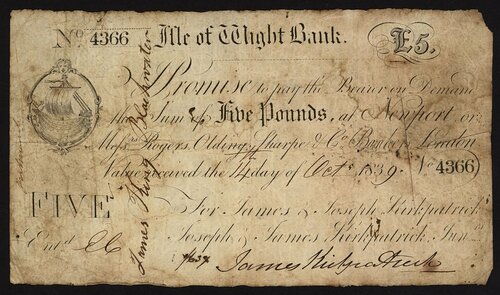 No 4366 Isle of Wight Bank. £5.
I Promise to pay the Bearer on Demand
the Sum of Five Pounds, at Newport or
Messrs Rogers, Olding, Sharpe & Co Bankers London
Value received the 14 day of Octr 1839.
No 4366
FIVE
For James & Joseph Kirkpatrick
Joseph & James Kirkpatrick Junr
Entd
James Kirkpatrick
James Blackwater